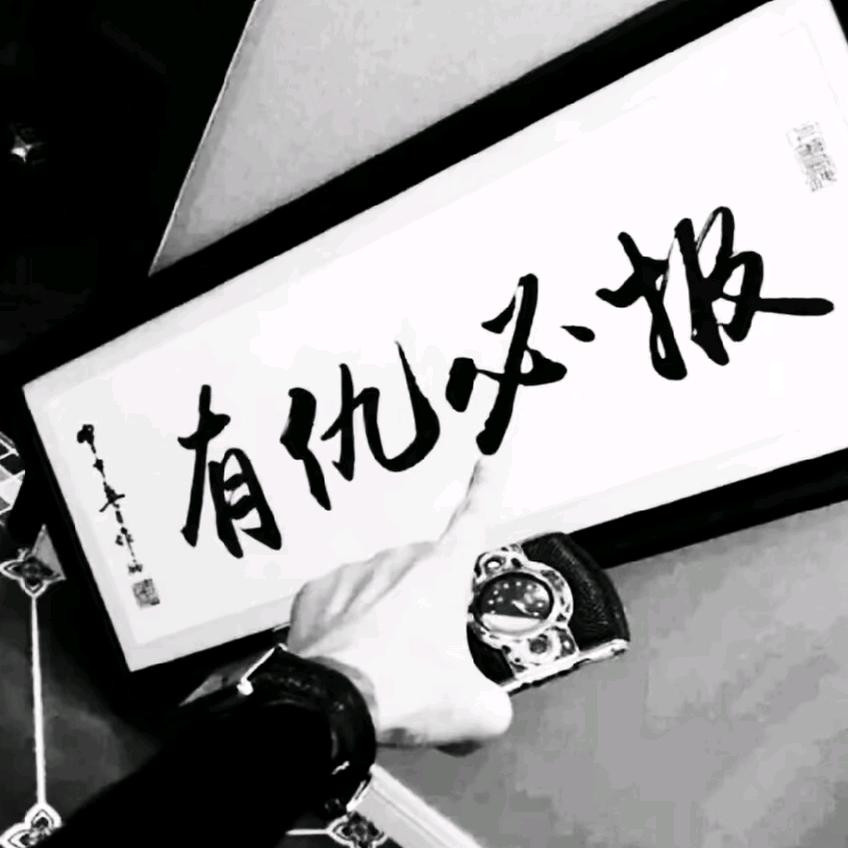 有仇必报